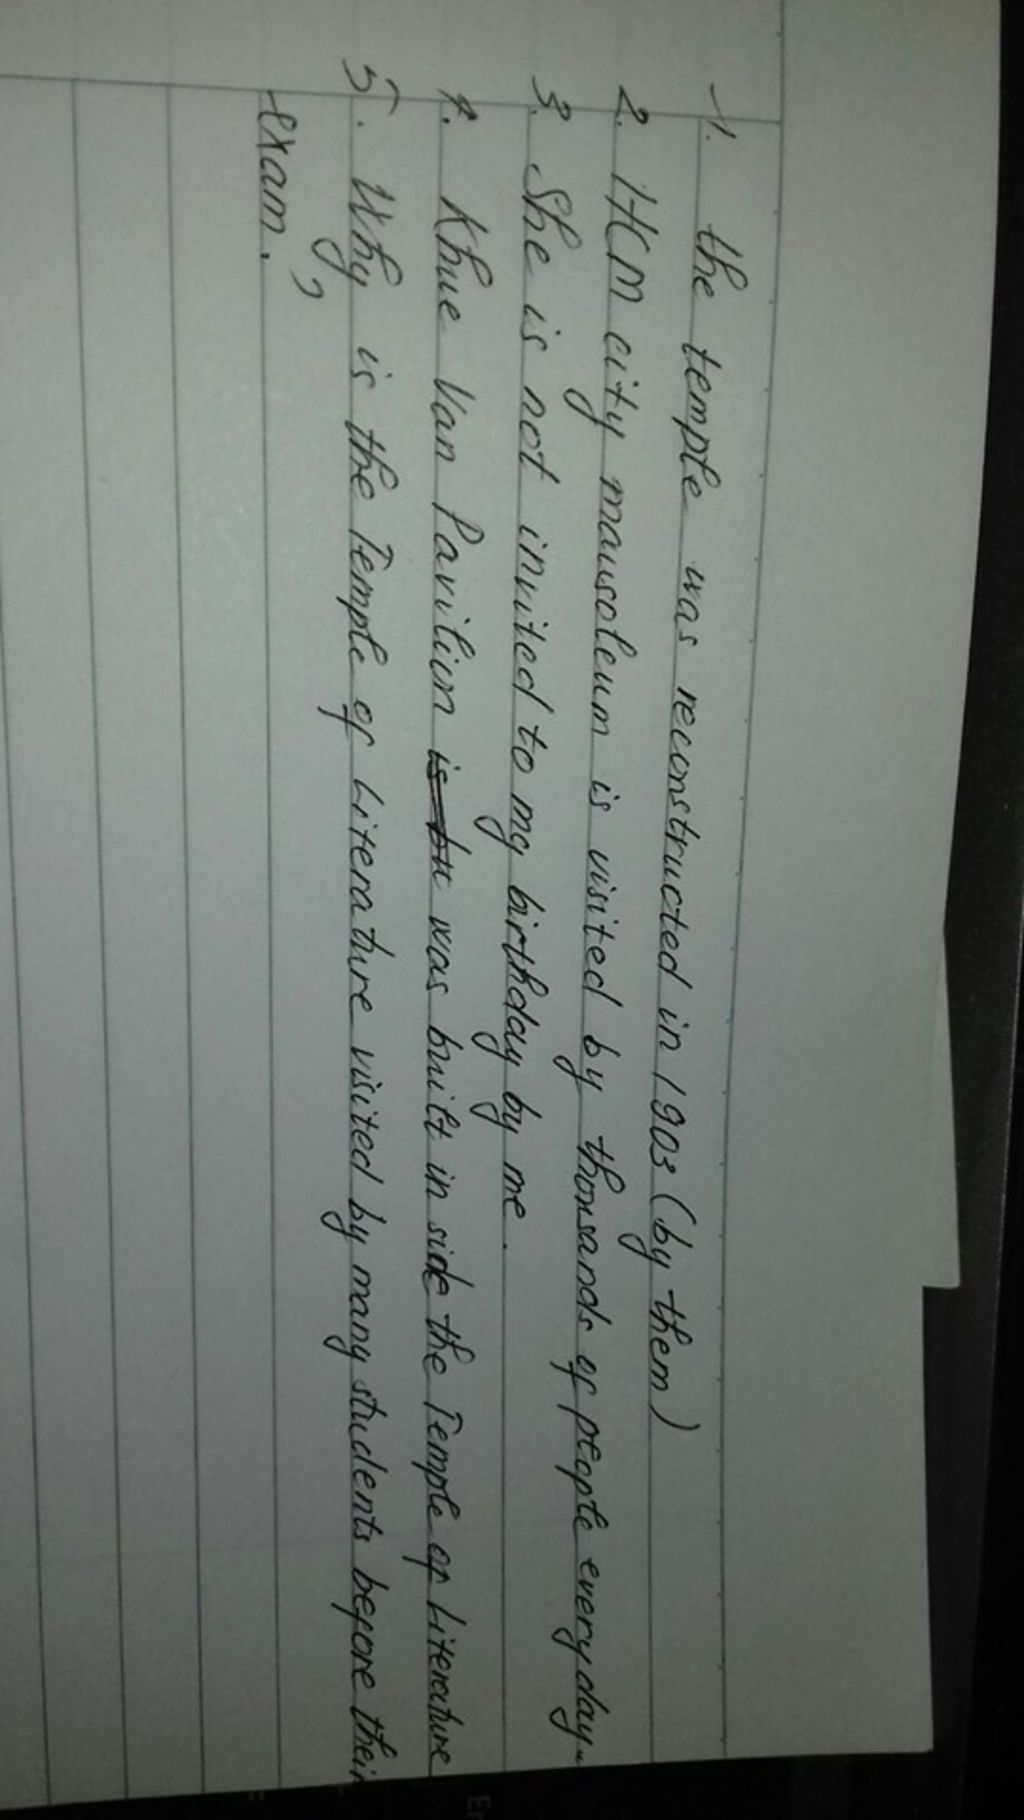 1. the temple was reconstructed in 1903 (by them)
2. HCM city mausoleum is visited by thousands of people everyday.
3. She is not invited to my birthday by me.
4. Khue Van Pavilion is bu was built in side the Temple of Literature
5. Why is the Temple of Literature visited by many students before their
exam. ?